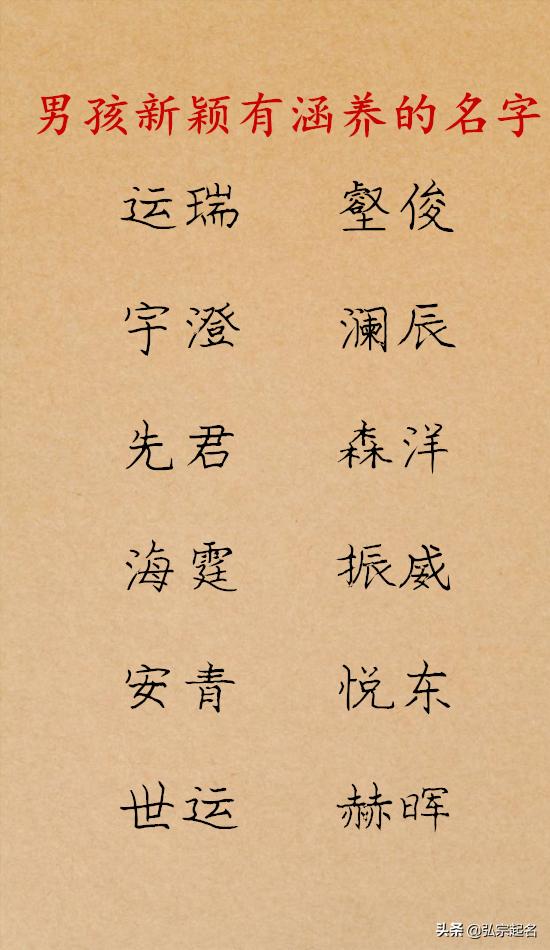 男孩新颖有涵养的名字
运瑞 壑俊
宇澄 澜辰
先君 森洋
海霆 振威
安青 悦东
世运 赫晖
头条 @弘宗起名